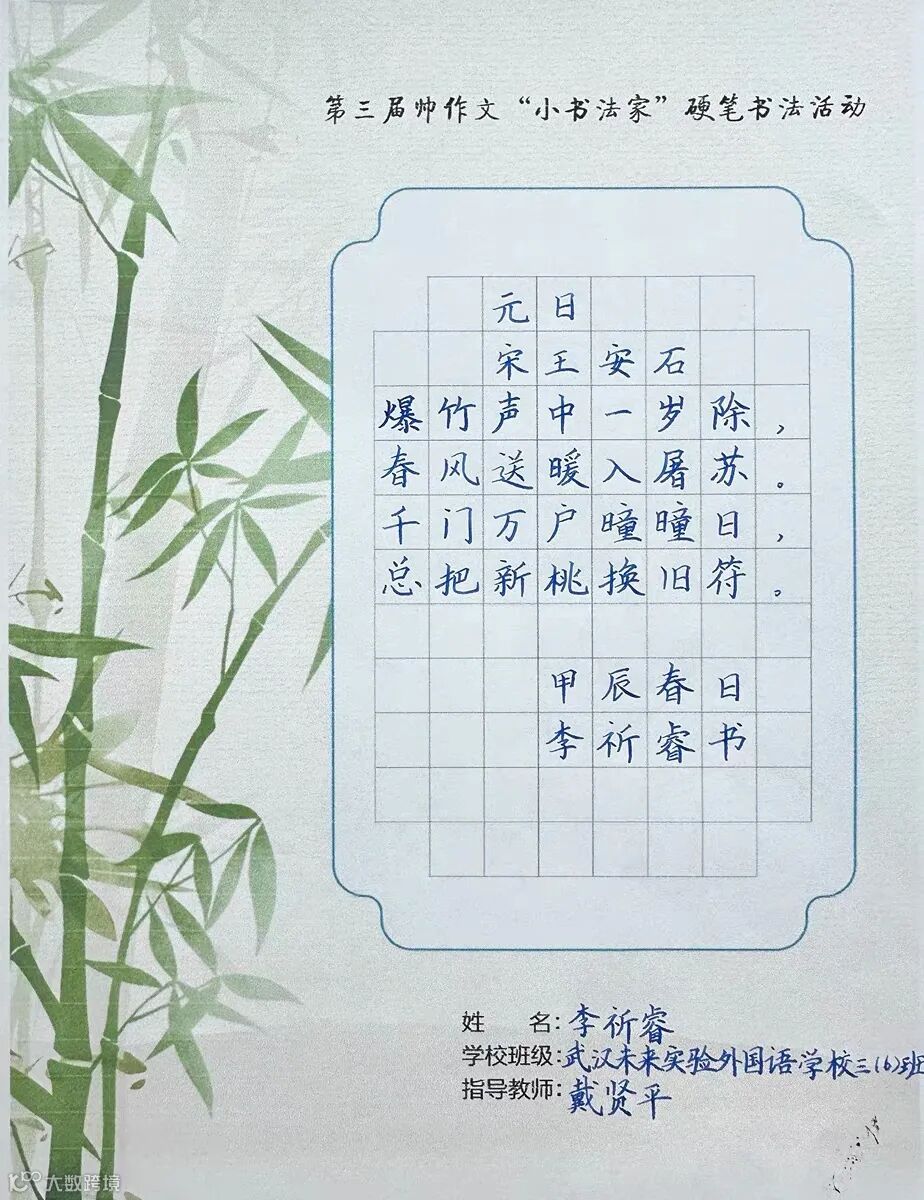 第三届帅作文“小书法家”硬笔书法活动
元日
宋王安石
爆竹声中一岁除，
春风送暖入屠苏。
千门万户曈曈日，
总把新桃换旧符。
甲辰春日
李祈睿书
姓 名：李祈睿
学校班级：武汉未来实验外国语学校三(6)班
指导教师：戴贤平
大数跨境